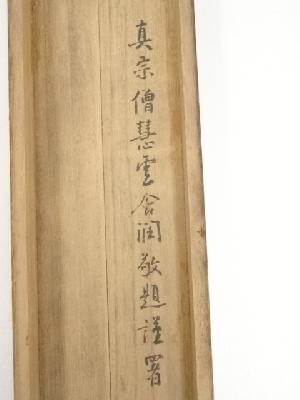 真宗僧慧雲含潤敬題謹署